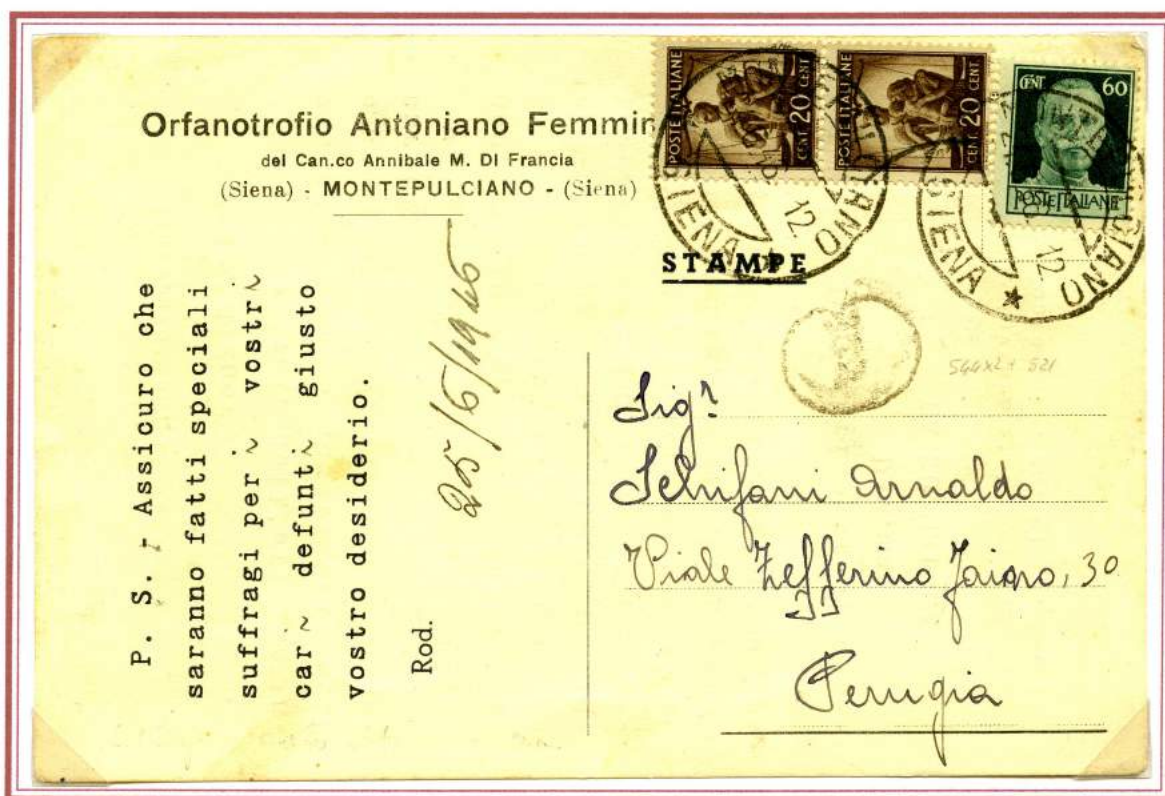 Orfanotrofio Antoniano Femmin
del Can.co Annibale M. DI Francia
(Siena) - MONTEPULCIANO - (Siena)
POSTE ITALIANE
CENT. 20 CENT
POSTE ITALIANE
CENT. 20 CENT
CENT 60
POSTE ITALIANE
SIENA
12
SIENA
12
STAMPE
544x2+521
P. S. - Assicuro che
saranno fatti speciali
suffragi per i vostri
cari defunti giusto
vostro desiderio.
Rod.
25/6/1946
Sigr
Schifani Arnaldo
Viale Zefferino 30
Perugia